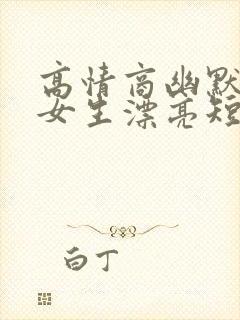 高情商幽默
女生漂亮短
白丁